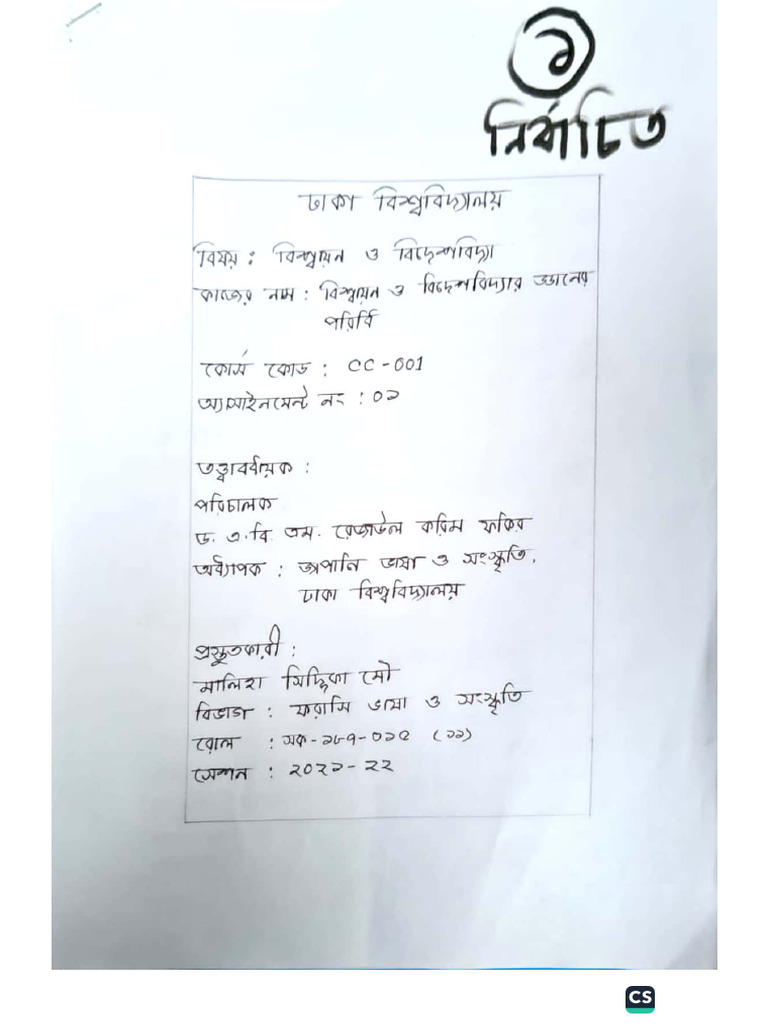 ১
নির্বাচিত
ঢাকা বিশ্ববিদ্যালয়
বিষয় : বিশ্বায়ন ও বিদেশবিদ্যা
কাজের নাম : বিশ্বায়ন ও বিদেশবিদ্যার জ্ঞানের
পরিধি
কোর্স কোড : CC-001
অ্যাসাইনমেন্ট নং : ০১
তত্ত্বাবধায়ক :
পরিচালক
ড. এ.বি. এম. রেজাউল করিম ফকির
অধ্যাপক : জাপানি ভাষা ও সংস্কৃতি,
ঢাকা বিশ্ববিদ্যালয়
প্রস্তুতকারী :
মালিহা সিদ্দিকা মৌ
বিভাগ : ফরাসি ভাষা ও সংস্কৃতি
রোল : সক-১৮৭-০১৫ (১১)
সেশন : ২০২১-২২
CS